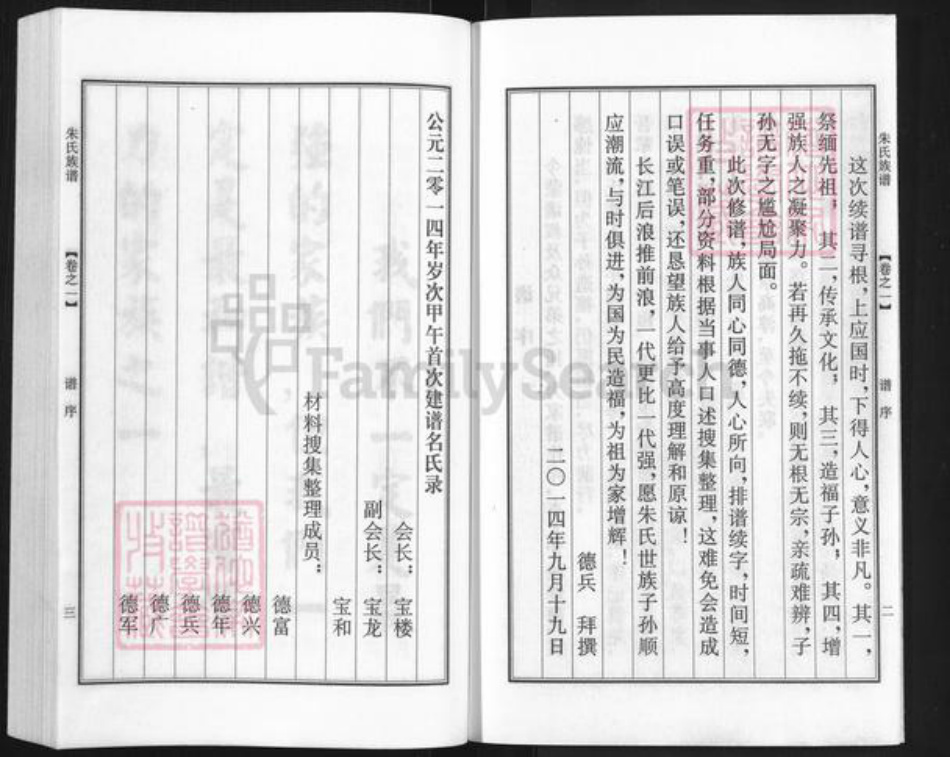 朱氏族谱 【卷之一】 谱序 二
这次续谱寻根，上应国时，下得人心，意义非凡。其一，
祭缅先祖， 其二，传承文化， 其三，造福子孙， 其四，增
强族人之凝聚力。若再久拖不续，则无根无宗，亲疏难辨，子
孙无字之尴尬局面。
此次修谱，族人同心同德，人心所向，排谱续字，时间短，
任务重，部分资料根据当事人口述搜集整理，这难免会造成
口误或笔误，还恳望族人给予高度理解和原谅！
长江后浪推前浪，一代更比一代强，愿朱氏世族子孙顺
应潮流，与时俱进，为国为民造福，为祖为家增辉！
德兵 拜撰
二〇一四年九月十九日
公元二零一四年岁次甲午首次建谱名氏录
会长：宝楼
副会长：宝龙
宝和
材料搜集整理成员：
德富
德兴
德年
德兵
德广
德军
朱氏族谱 【卷之一】 谱序 三
FamilySearch